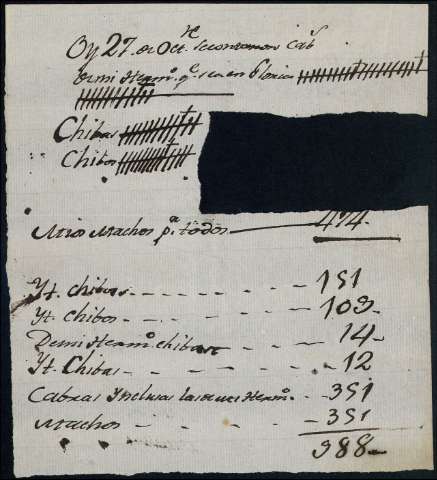 Oy 27 de Oct.re se contaron Cab.s
de mi Herm.o q.e sea en Gloria
Chibas
Chibos
Mios Machos p.a todos 474
Yt. Chibas 151
Yt. Chibos 109
De mi Herm.o chibas 14
Yt. Chibas 12
Cabras Ynclusas las de mi Herm.o 351
Machos 351
988